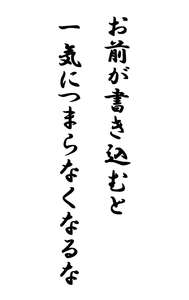 お前が書き込むと
一気につまらなくなるな